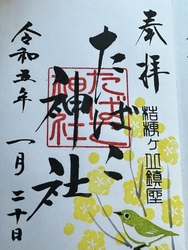 奉拝
桔梗ヶ丘鎮座
たばこ神社
たばこ神社
令和五年
一月二十日